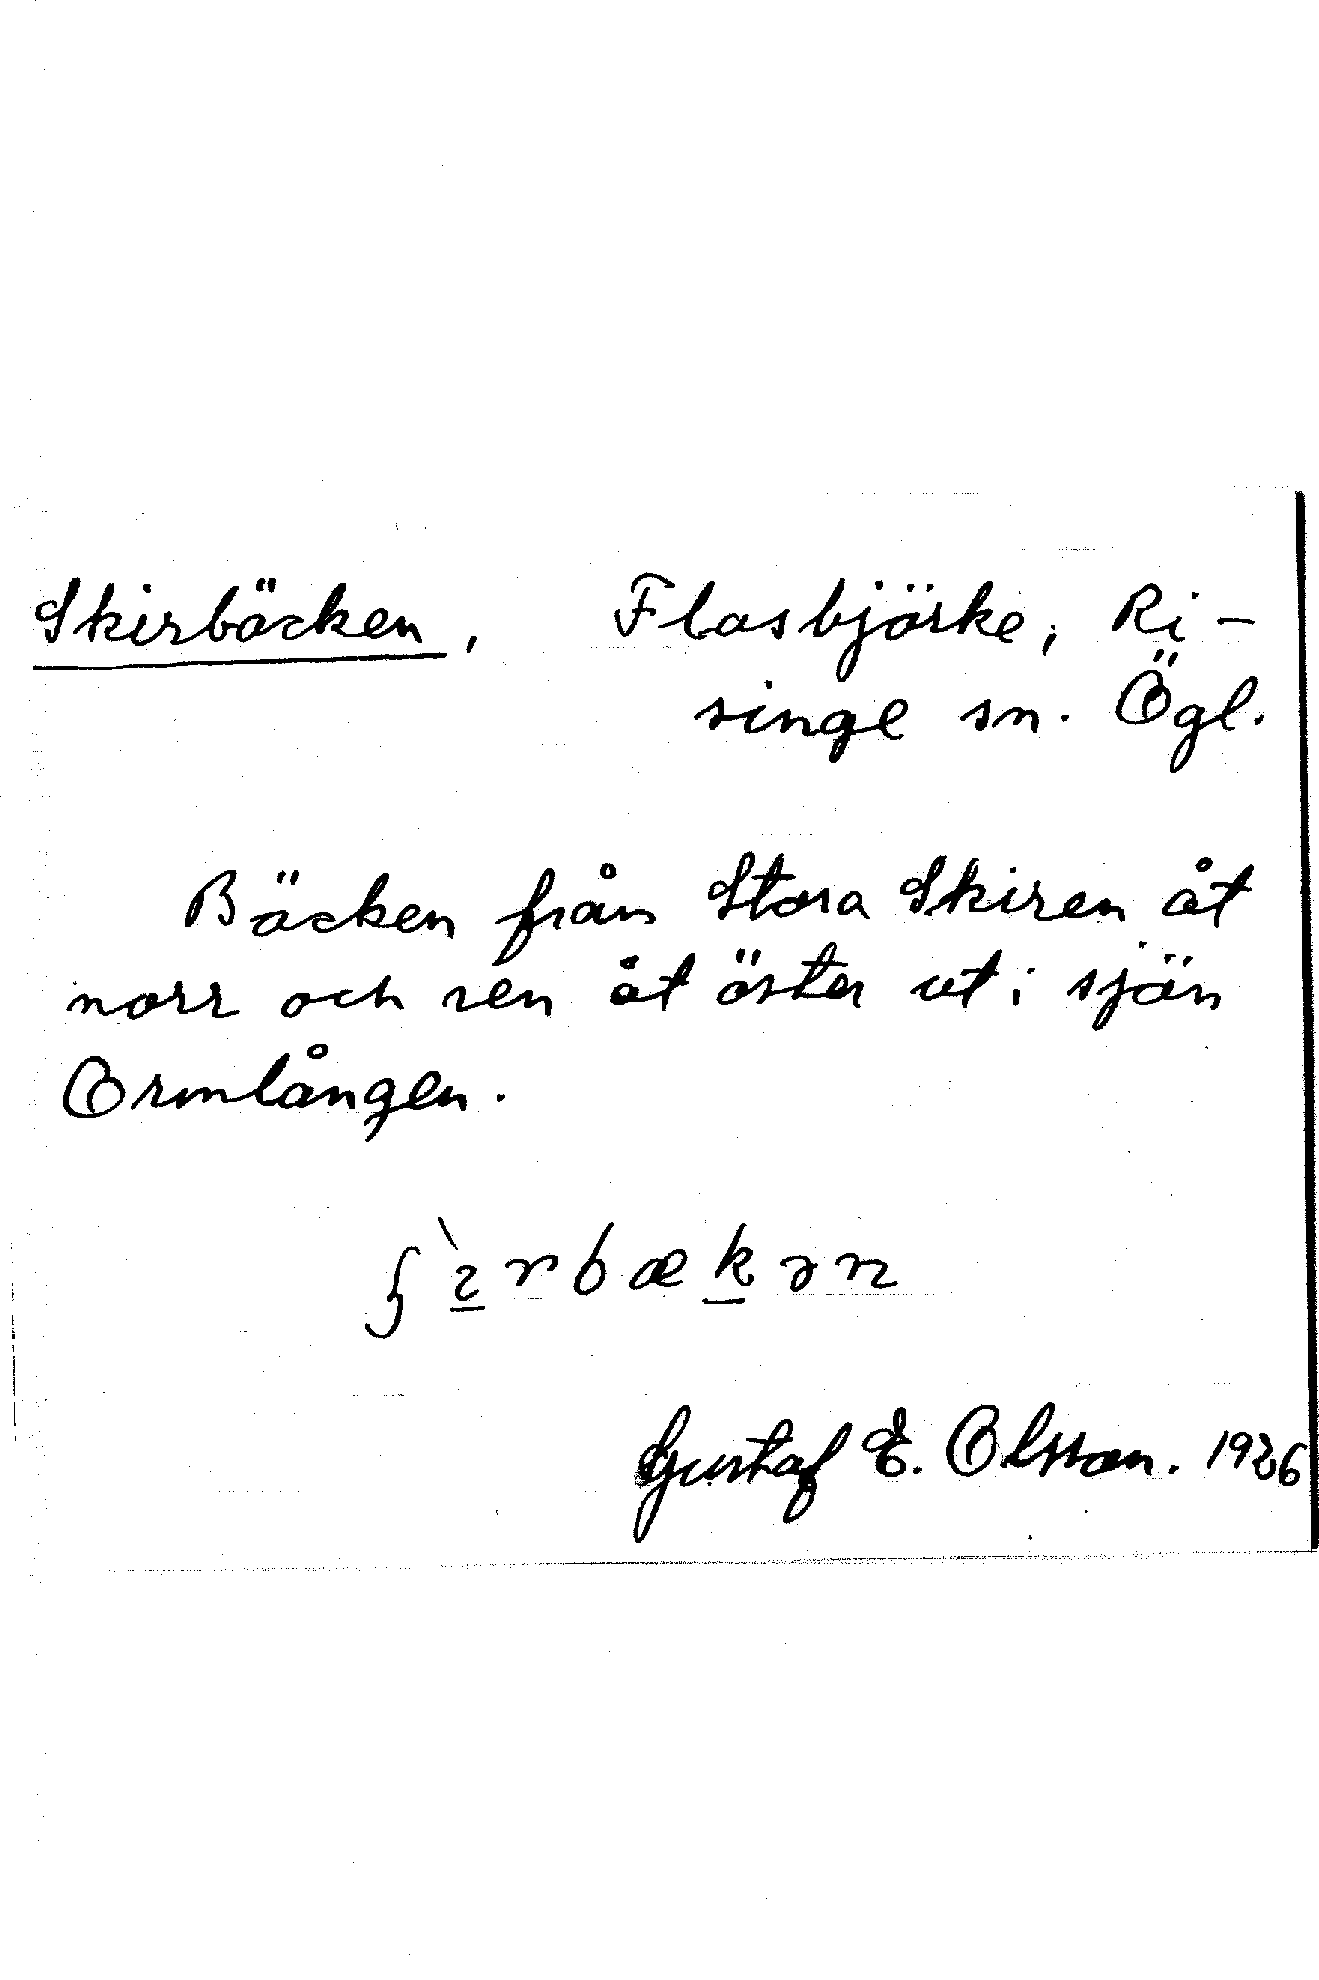 Skirbäcken, Flasbjörke, Ri-
singe sn. Ögl.
Bäcken från Stora Skiren åt
norr och sen åt öster ut i sjön
Ormlången.
ʃ̀ırbækən
Gustaf E. Olsson. 1926